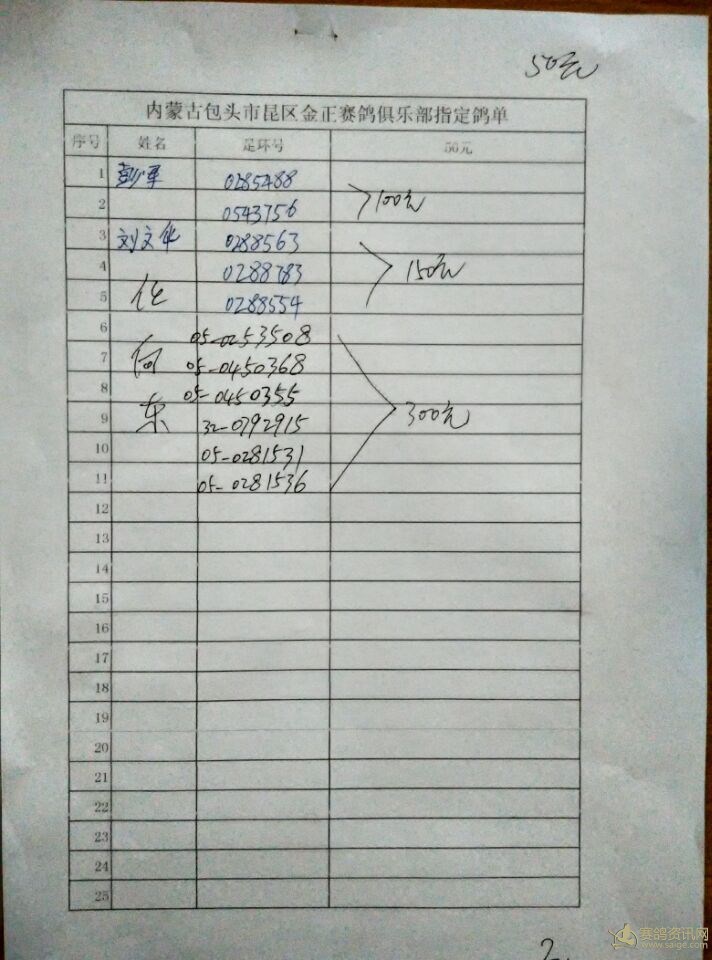 50元
内蒙古包头市昆区金正赛鸽俱乐部指定鸽单
序号 姓名 足环号 50元
1 彭军 0285488
2 0543756 100元
3 刘文华 0288563
4 0288783 150元
5 0288554
6 05-0253508
7 何 05-0450368
8 05-0450355
9 东 32-0792915 300元
10 05-0281531
11 05-0281536
12
13
14
15
16
17
18
19
20
21
22
23
24
25
赛鸽资讯网
www.saige.com